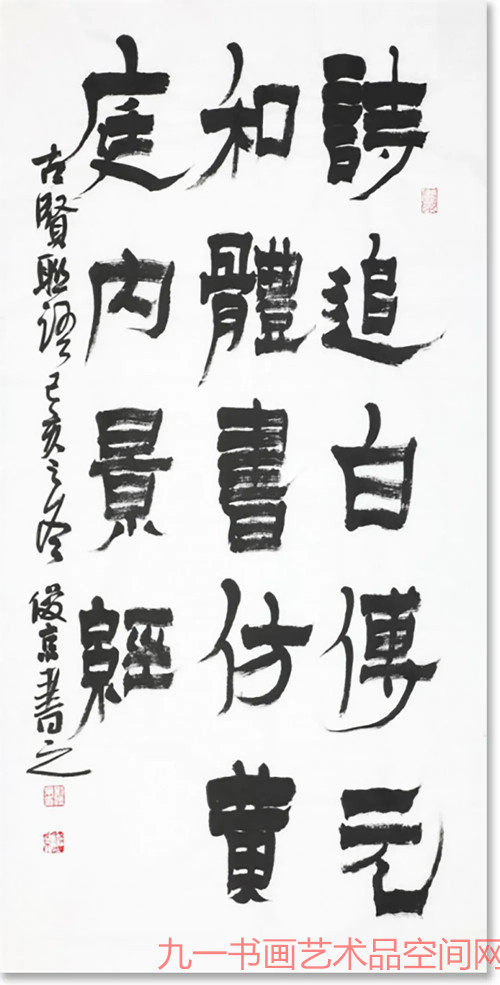 詩追白傅元
和體書仿黄
庭内景經
古賢聯語己亥之冬
俊京書之
九一书画艺术品空间网